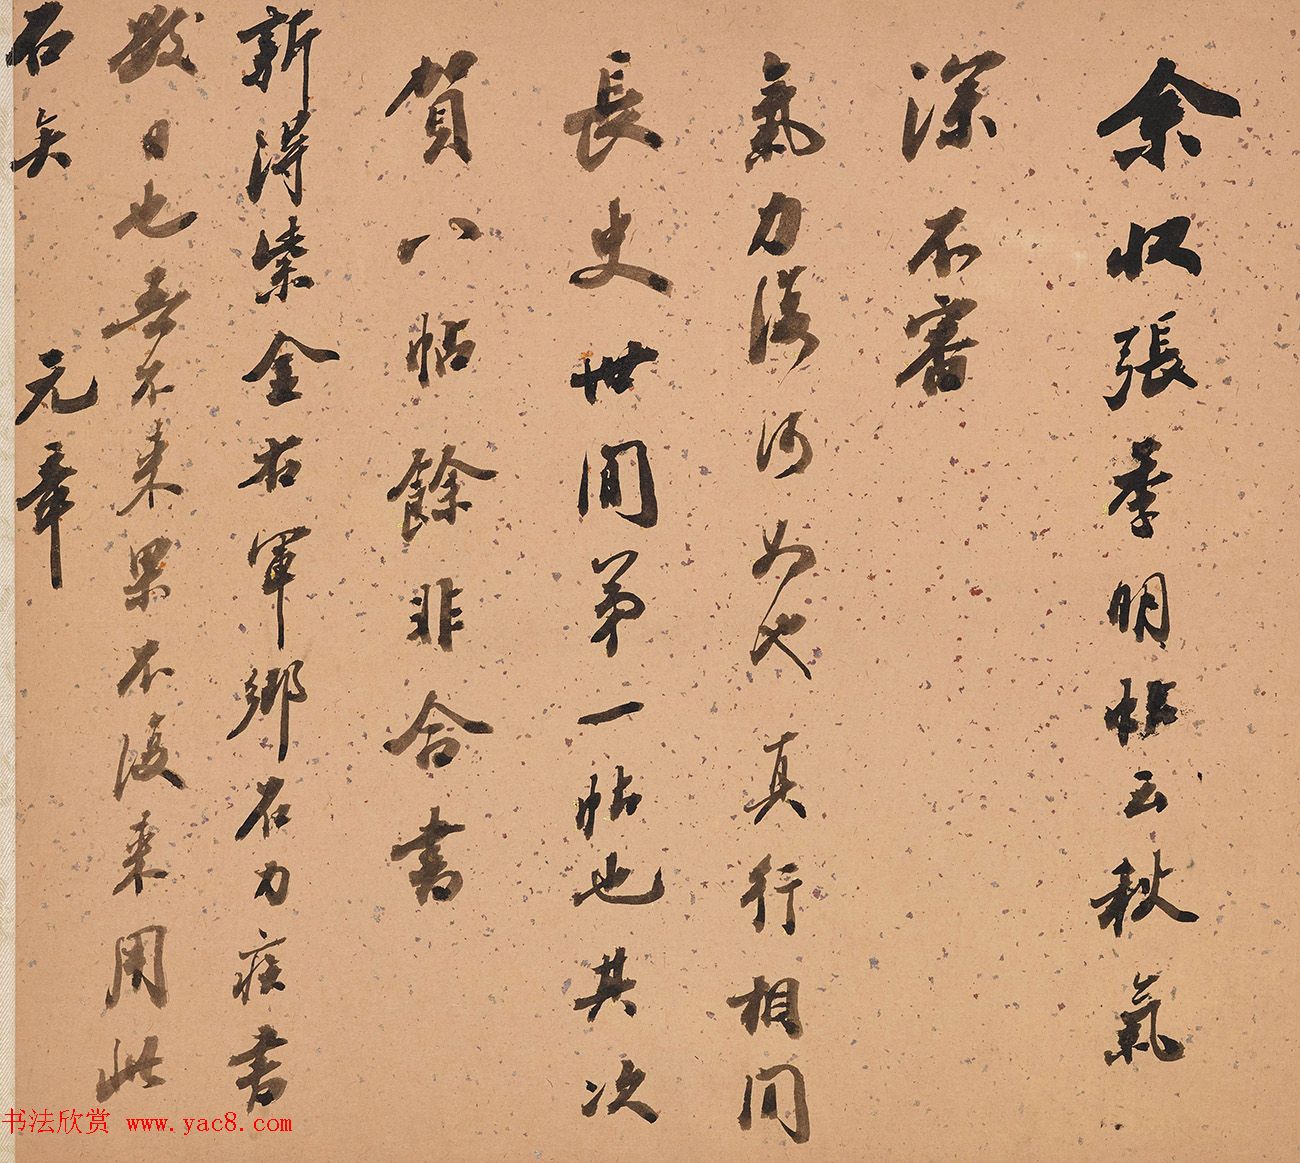 余收張季明帖云秋氣
深不審
氣力復何如也真行相間
長史世間第一帖也其次
賀八帖餘非合書
新得紫金右軍鄉石力疾書
數日也吾不來果不復來用此
石矣 元章
书法欣赏 www.yac8.com